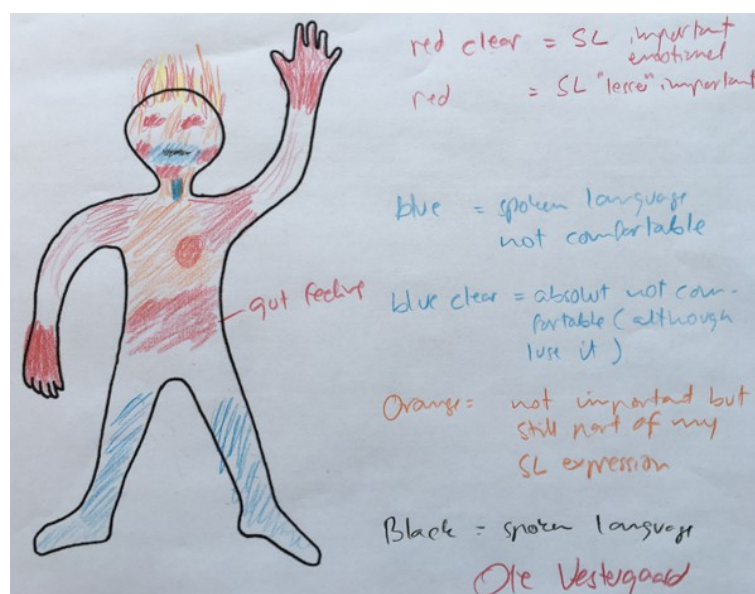 red clear = SL important
emotional
red = SL "lesse" important
blue = spoken language
not comfortable
gut feeling
blue clear = absolut not com-
fortable (although
I use it)
Orange = not important but
still part of my
SL expression
Black = spoken language
Ole Vestergaard